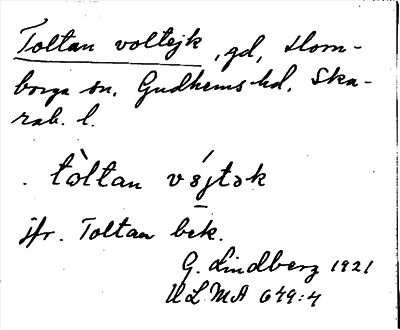 Toltan voltejk, gd, Horn-
borga sn. Gudhems hd. Ska-
rab. l.
tòltan vǿjtək
jfr. Toltan bek.
G. Lindberg 1921
ULMA 679:4